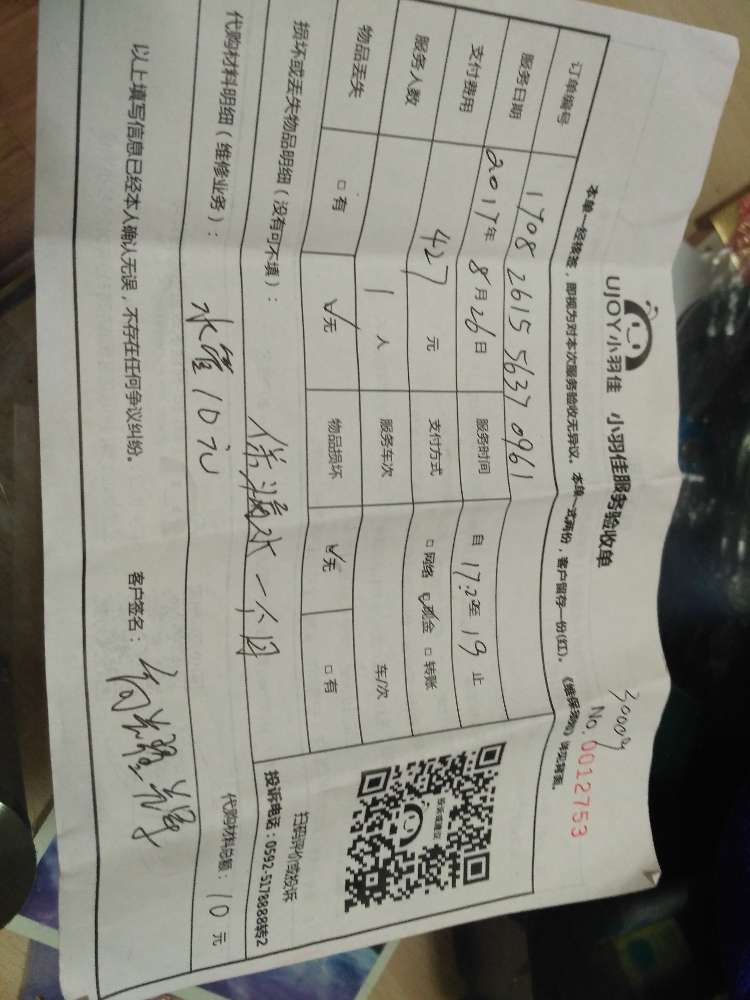 UJOY小羽佳 小羽佳服务验收单
No. 0012753
本单一经核签，即视为对本次服务验收无异议。本单一式两份，客户留存一份(红)。《维保须知》详见背面。
订单编号 1708 2615 5637 0961
服务日期 2017年 8月 26日 服务时间 自 17:2 至 19 止
支付费用 427 元 支付方式 □网络 ☑现金 □转账
服务人数 1 人 服务车次 车/次
物品丢失 □有 ☑无 物品损坏 ☑无 □有
损坏或丢失物品明细（没有可不填）：
一个月
扫码评价或投诉
投诉电话：0592-5178888转2
投诉或建议
代购材料明细（维修业务）： 水管10元
代购材料总额： 10 元
以上填写信息已经本人确认无误，不存在任何争议纠纷。 客户签名：